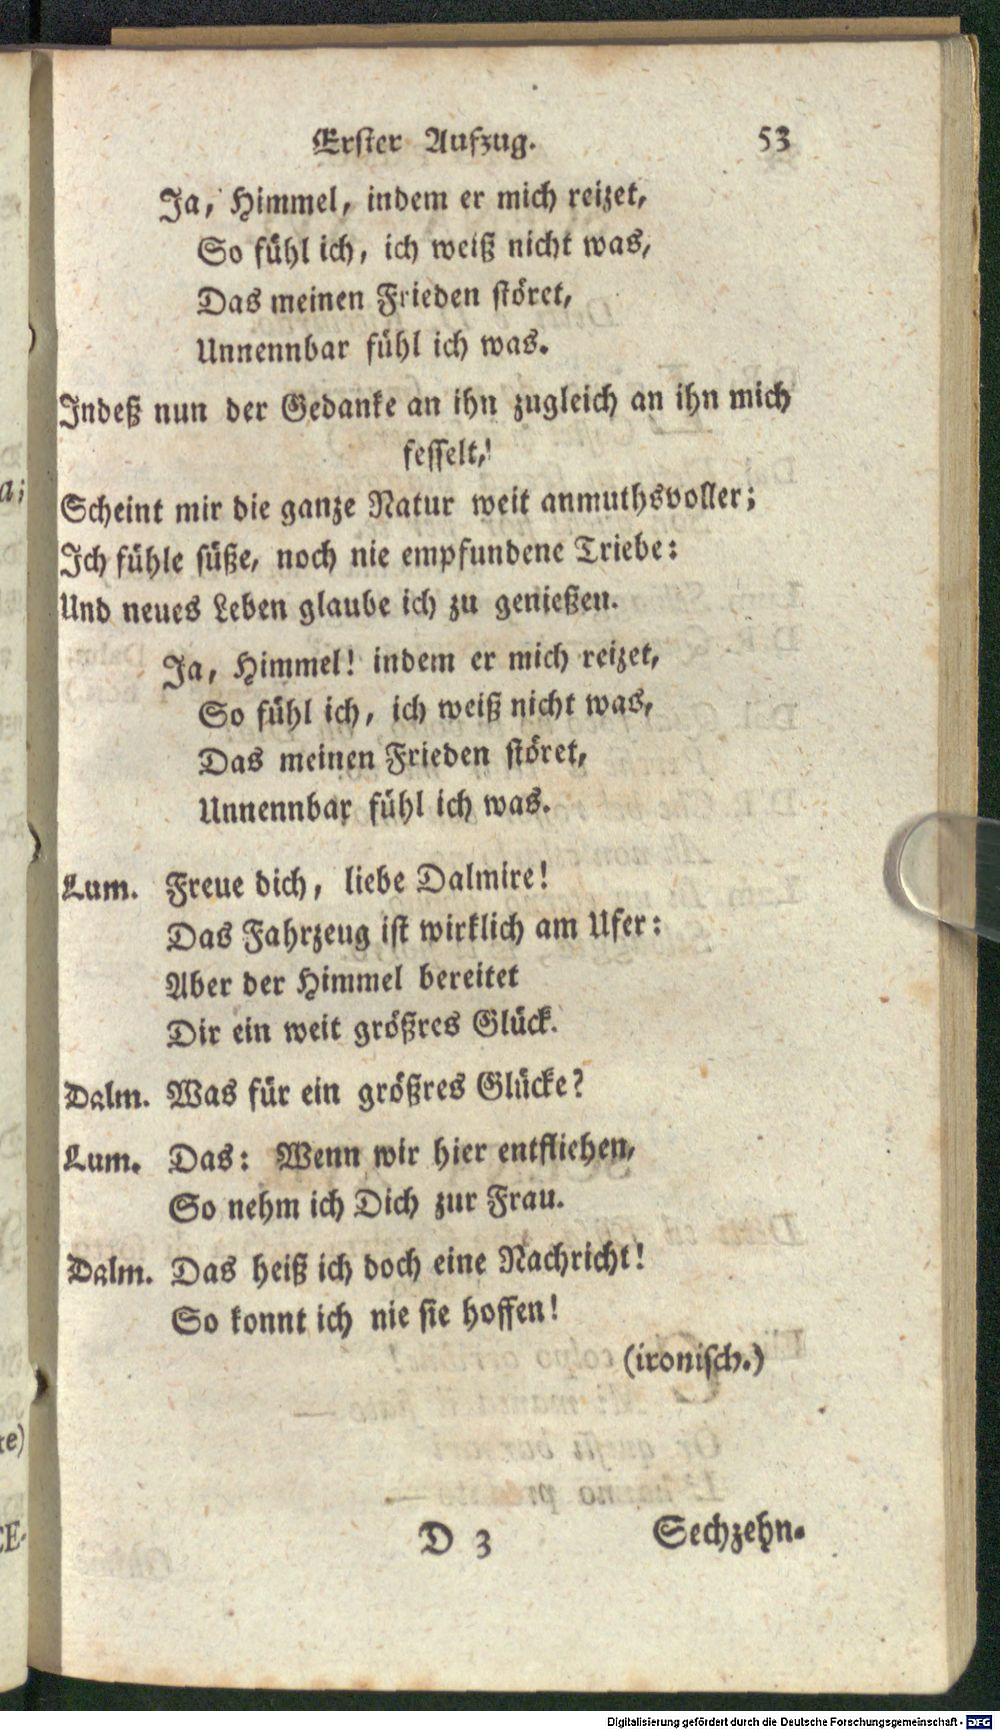 Erster Aufzug. 53
Ja, Himmel, indem er mich reizet,
So fühl ich, ich weiß nicht was,
Das meinen Frieden störet,
Unnennbar fühl ich was.
Indeß nun der Gedanke an ihn zugleich an ihn mich
fesselt,
Scheint mir die ganze Natur weit anmuthsvoller;
Ich fühle süße, noch nie empfundene Triebe:
Und neues Leben glaube ich zu genießen.
Ja, Himmel! indem er mich reizet,
So fühl ich, ich weiß nicht was,
Das meinen Frieden störet,
Unnennbar fühl ich was.
Lum. Freue dich, liebe Dalmire!
Das Fahrzeug ist wirklich am Ufer:
Aber der Himmel bereitet
Dir ein weit größres Glück.
Dalm. Was für ein größres Glücke?
Lum. Das: Wenn wir hier entfliehen,
So nehm ich Dich zur Frau.
Dalm. Das heiß ich doch eine Nachricht!
So konnt ich nie sie hoffen!
(ironisch.)
D 3 Sechzehn-
Digitalisierung gefördert durch die Deutsche Forschungsgemeinschaft - DFG